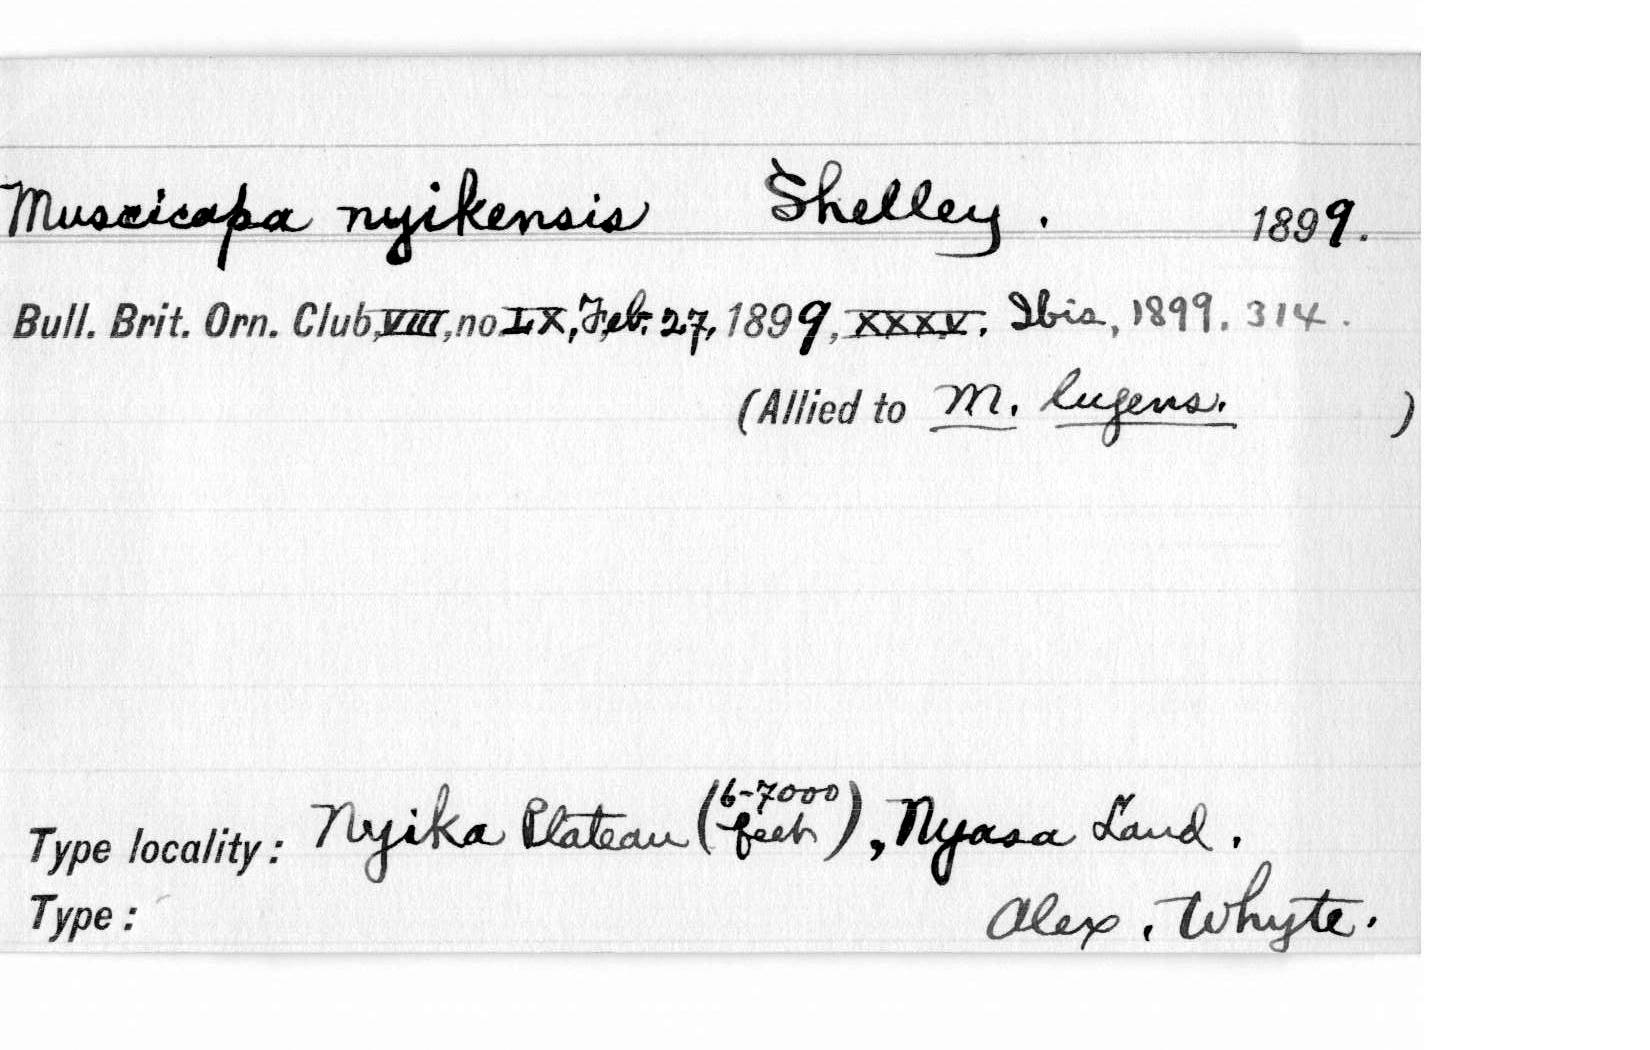 Muscicapa nyikensis Shelley. 1899.
Bull. Brit. Orn. Club, VIII, no. LX, Feb. 27, 1899, XXXV. Ibis, 1899. 314.
(Allied to M. lugens. )
Type locality: Nyika Plateau (6-7000 feet), Nyasa Land.
Type: Alex. Whyte.